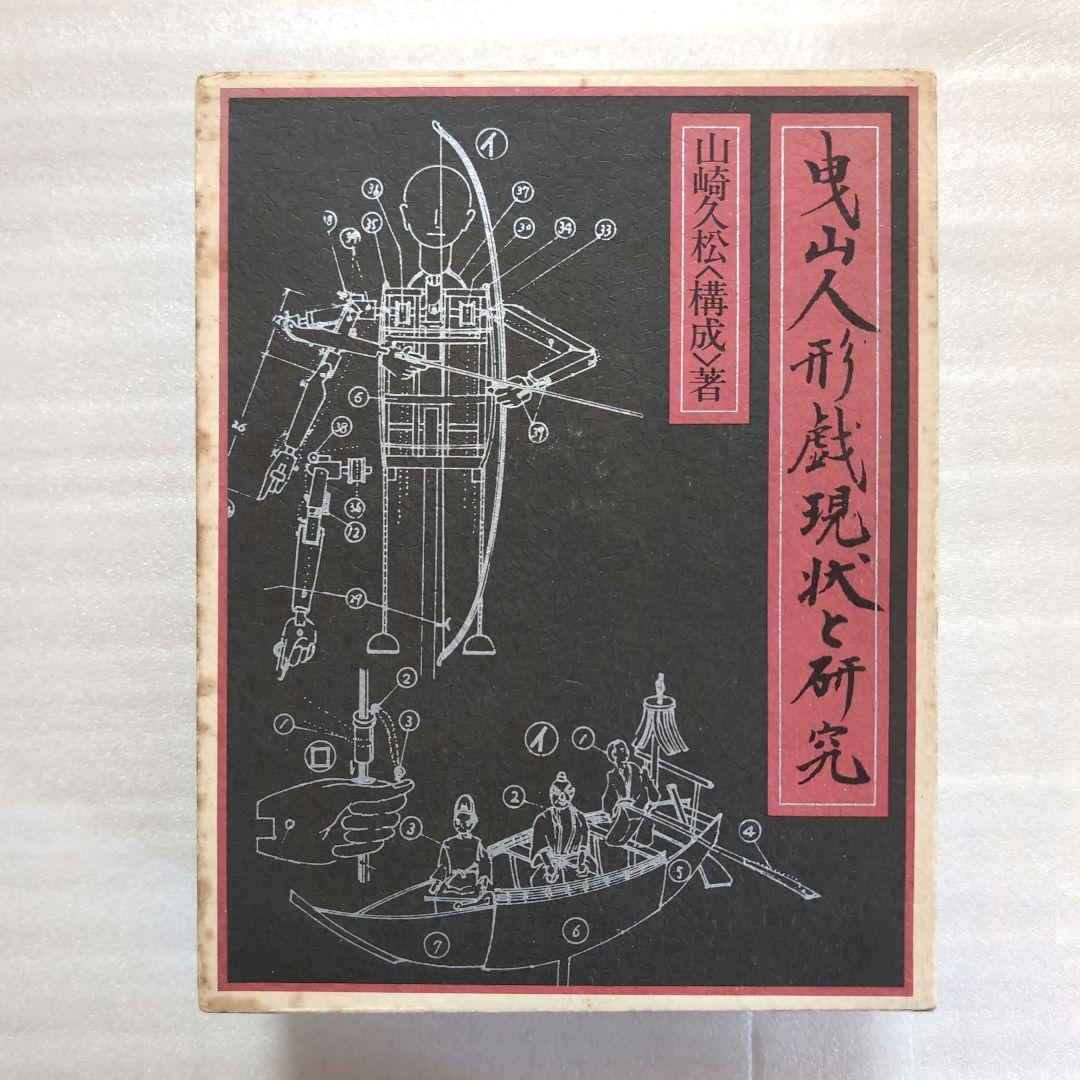 曳山人形戯現状と研究
山崎久松〈構成〉著
イ
36
37
38
39
35
30
34
33
6
26
38
36
12
39
29
2
1
3
ロ
イ
1
2
3
4
5
6
7